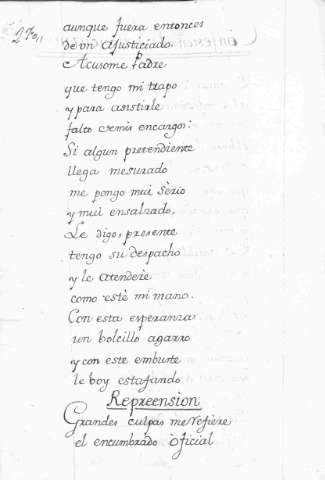 aunque fuera entonces
de vn ajusticiado
Acusome Padre
que tengo mi trapo
y para asistirle
falto
Si algun pretendiente
llega mesurado
me pongo mui serio
y mui ensalzado,
Le digo, presente
tengo su despacho
y le atenderè
como estè mi mano.
Con esta esperanza
un bolcillo agarro
y con este embuste
le boy estafando
Repreension
Grandes culpas me refiere
el encumbrado òficial